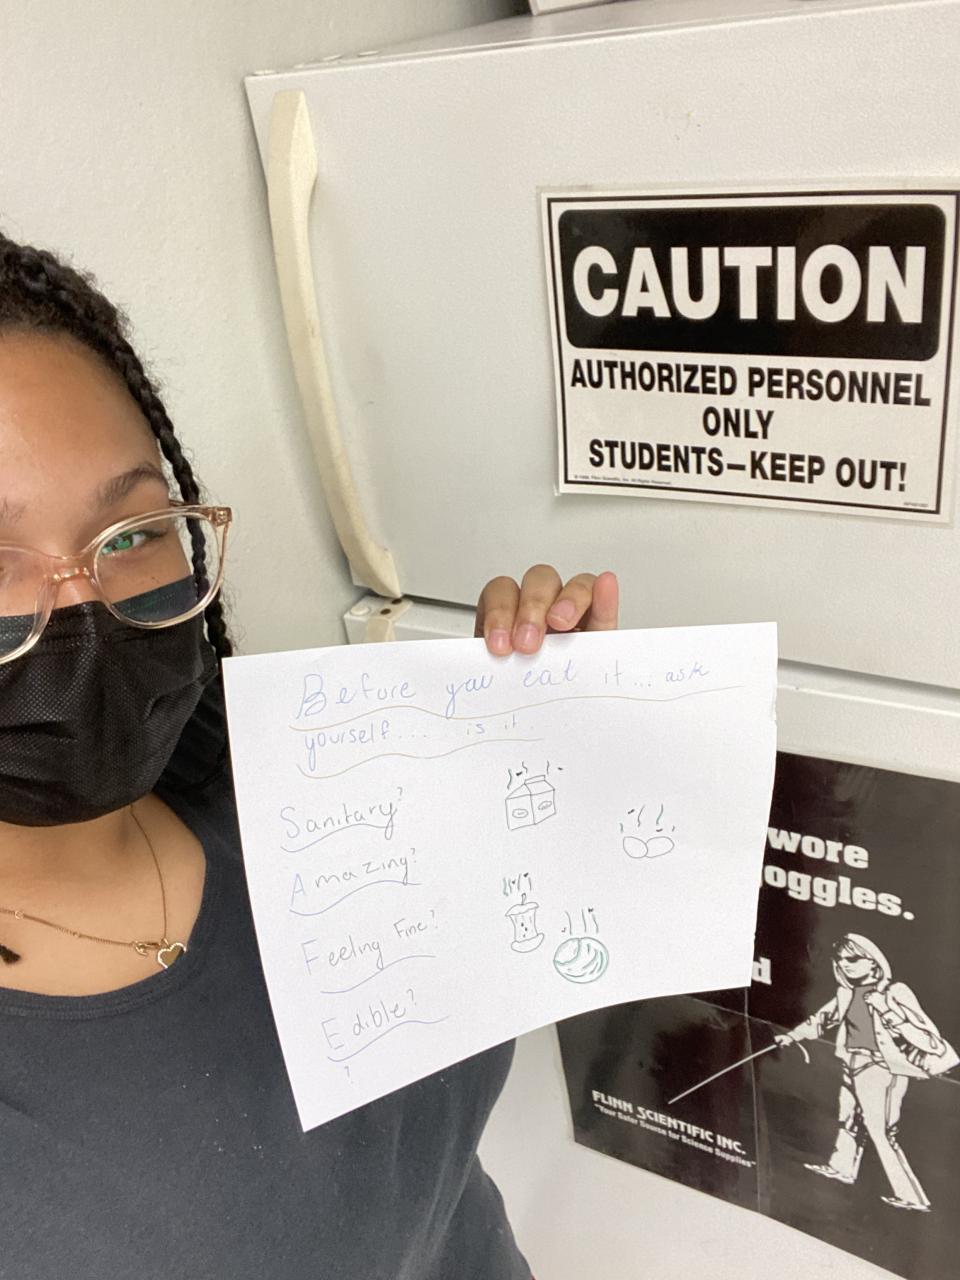 CAUTION
AUTHORIZED PERSONNEL
ONLY
STUDENTS–KEEP OUT!
Before you eat it... ask
yourself... is it...
Sanitary?
Amazing?
Feeling Fine?
Edible?
?
wore
oggles.
d
FLINN SCIENTIFIC INC.
"Your Safer Source for Science Supplies"